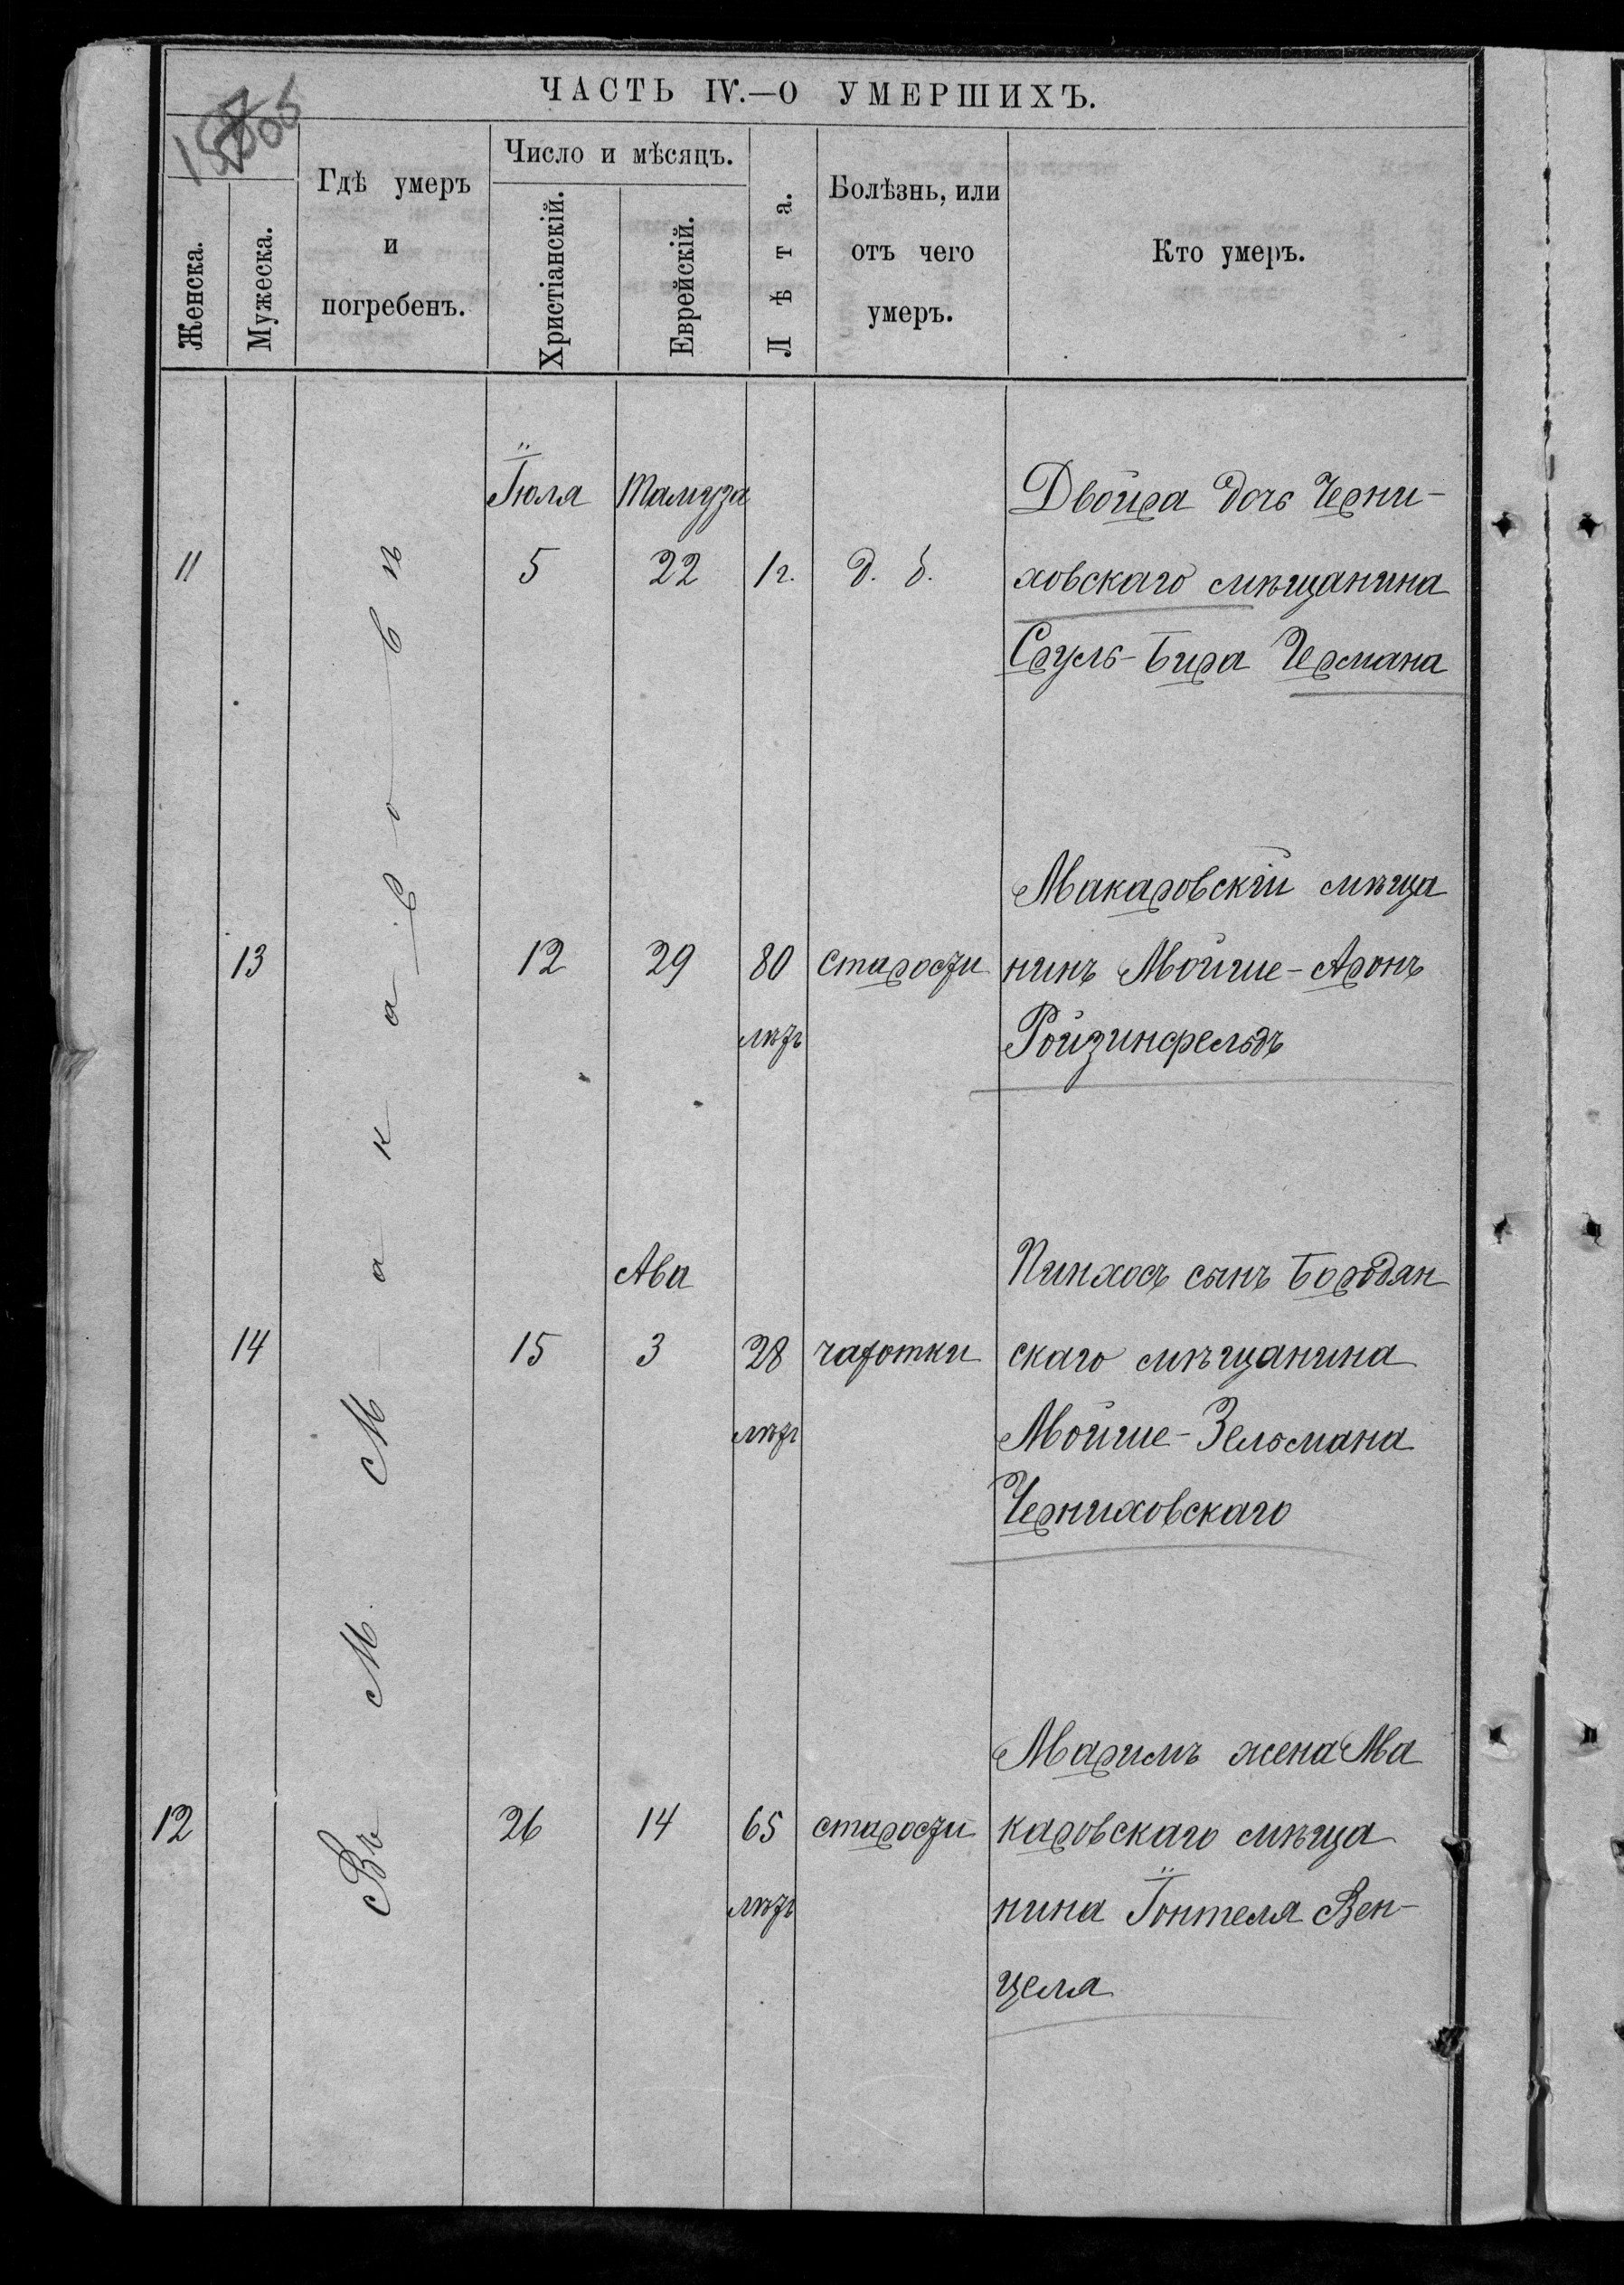 ЧАСТЬ IV.—О УМЕРШИХЪ.
Женска.
Мужеска.
Гдѣ умеръ
и
погребенъ.
Число и мѣсяцъ.
Христіанскій.
Еврейскій.
Лѣта.
Болѣзнь, или
отъ чего
умеръ.
Кто умеръ.
Въ М. Макаровѣ
Іюля Тамуза Двойра дочь Черни-
11 5 22 1 г. д. б. ховскаго мѣщанина
Сруль-Бира Чермана
Макаровскій мѣща
13 12 29 80 старости нинъ Мойше-Аронъ
лѣтъ Ройзинфельдъ
Ава Пинхосъ сынъ Бородян
14 15 3 28 чахотки скаго мѣщанина
лѣтъ Мойше-Зельмана
Черниховскаго
Маримъ жена Ма
12 26 14 65 старости каровскаго мѣща
лѣтъ нина Іонтеля Вен-
целя